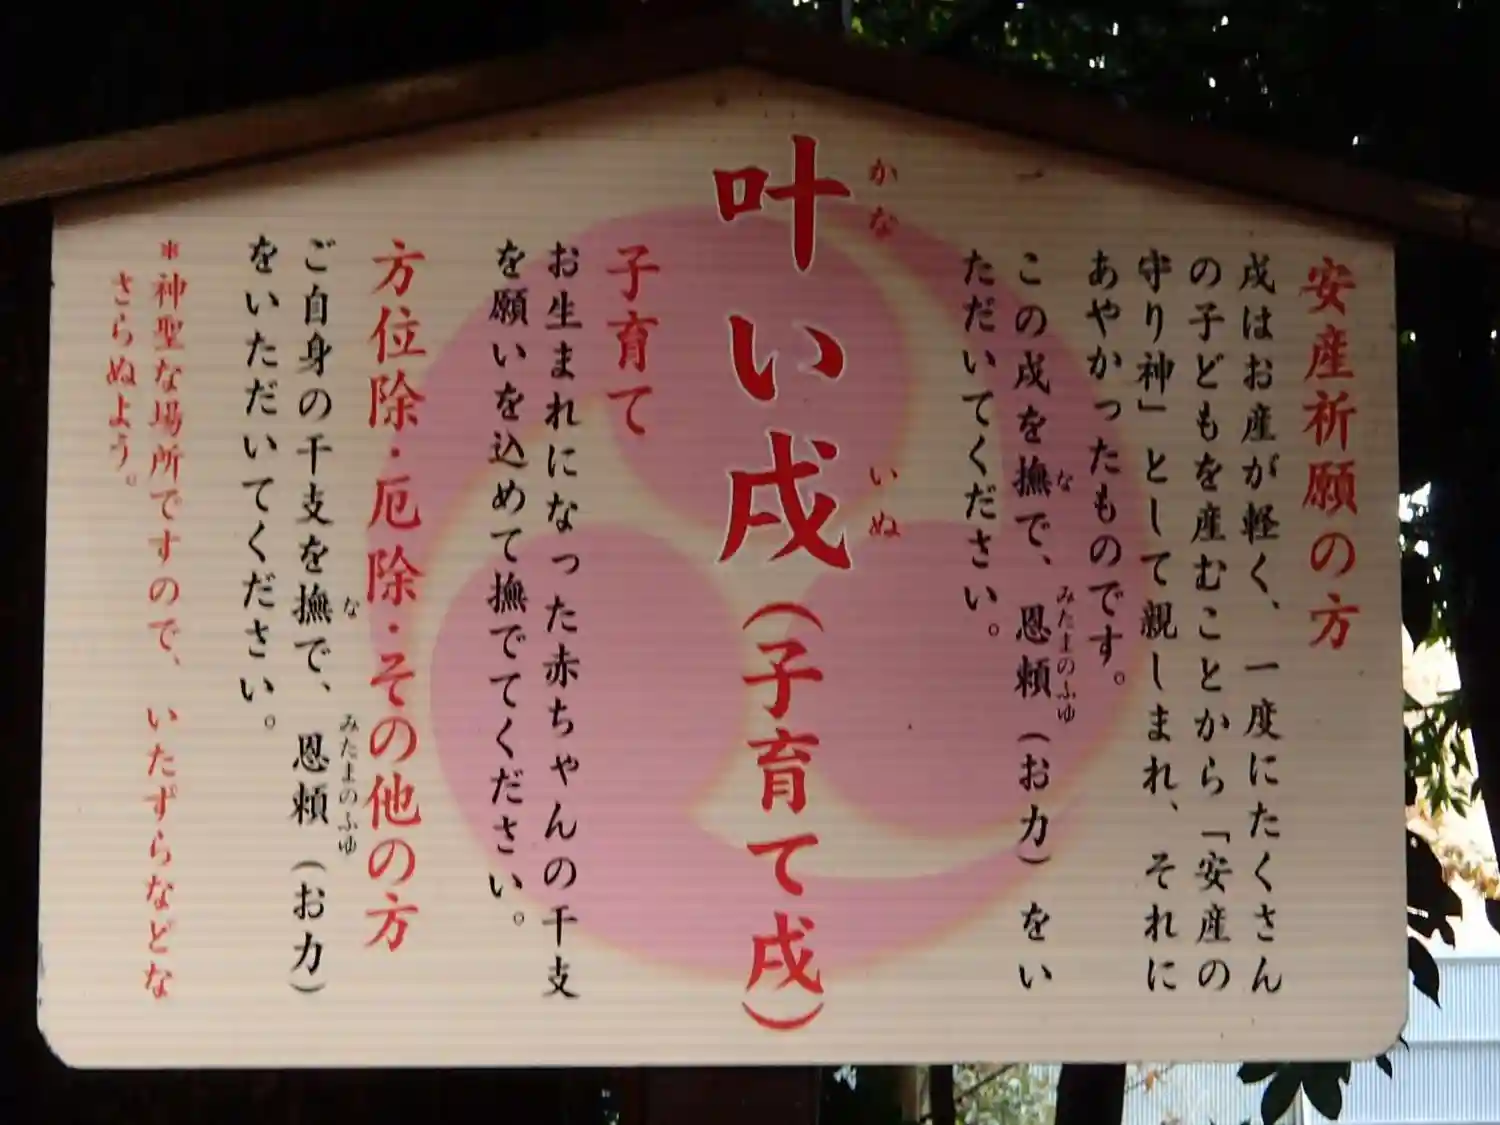 安産祈願の方
戌はお産が軽く、一度にたくさん
の子どもを産むことから「安産の
守り神」として親しまれ、それに
あやかったものです。
この戌を撫で、恩頼(お力)をい
な
みたまのふゆ
ただいてください。
叶い戌(子育て戌)
かな
いぬ
子育て
お生まれになった赤ちゃんの干支
を願いを込めて撫でてください。
方位除・厄除・その他の方
ご自身の干支を撫で、恩頼(お力)
な
みたまのふゆ
をいただいてください。
*神聖な場所ですので、いたずらなどな
さらぬよう。